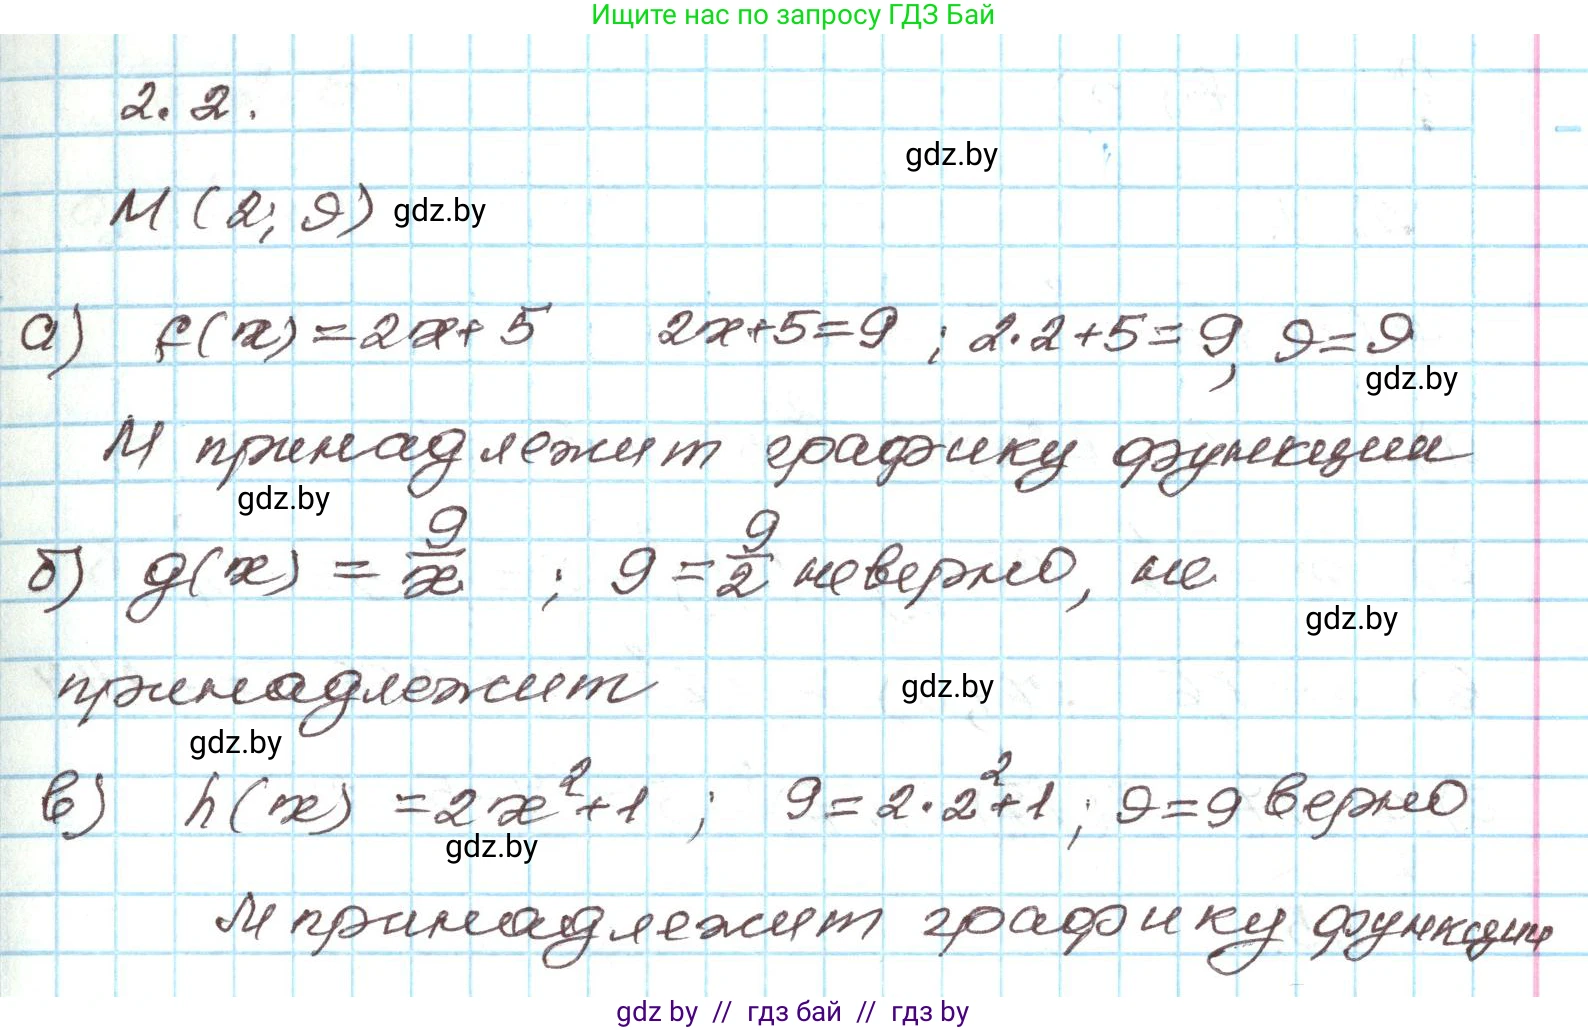 Ищите нас по запросу ГДЗ Бай
2.2.
gdz.by
М (2; 9) gdz.by
а) f(x) = 2x + 5 2x+5=9 ; 2·2+5=9, 9=9
gdz.by
М принадлежит графику функции
gdz.by
б) g(x) = 9/x ; 9 = 9/2 неверно, не
gdz.by
принадлежит gdz.by
gdz.by
в) h(x) = 2x²+1 ; 9=2·2²+1 ; 9=9 верно
gdz.by
М принадлежит графику функции
gdz by // гдз бай // гдз by